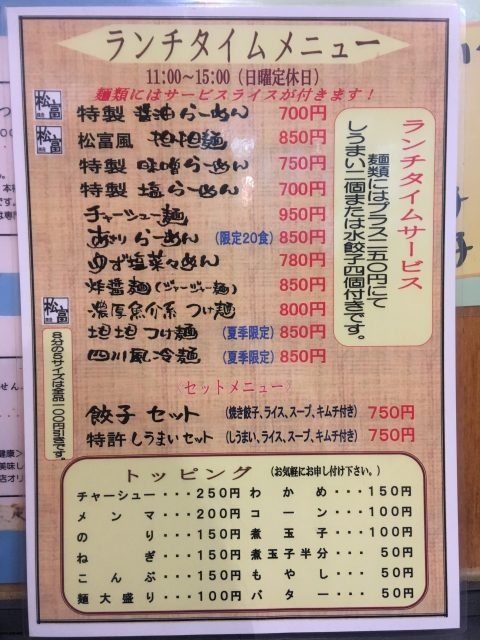 ランチタイムメニュー
11:00~15:00（日曜定休日）
麺類にはサービスライスが付きます！
松富 特製 醤油らーめん 700円
松富 松富風 担担麺 850円
特製 味噌らーめん 750円
特製 塩らーめん 700円
チャーシュー麺 950円
あさりらーめん （限定20食）850円
ゆず塩菜々めん 780円
炸醤麺（ジャージャー麺） 850円
濃厚魚介系 つけ麺 800円
坦坦つけ麺 （夏季限定）850円
四川風冷麺 （夏季限定）850円
ランチタイムサービス
麺類にはプラス二五〇円にて
しうまい二個または水餃子四個付きです。
松富
8分の5サイズは全品一〇〇円引きです。
〈セットメニュー〉
餃子セット （焼き餃子、ライス、スープ、キムチ付き） 750円
特許しうまいセット （しうまい、ライス、スープ、キムチ付き） 750円
トッピング （お気軽にお申し付け下さい。）
チャーシュー・・・250円 わかめ・・・150円
メンマ・・・200円 コーン・・・100円
のり・・・150円 煮玉子・・・100円
ねぎ・・・150円 煮玉子半分・・・50円
こんぶ・・・150円 もやし・・・50円
麺大盛り・・・100円 バター・・・50円